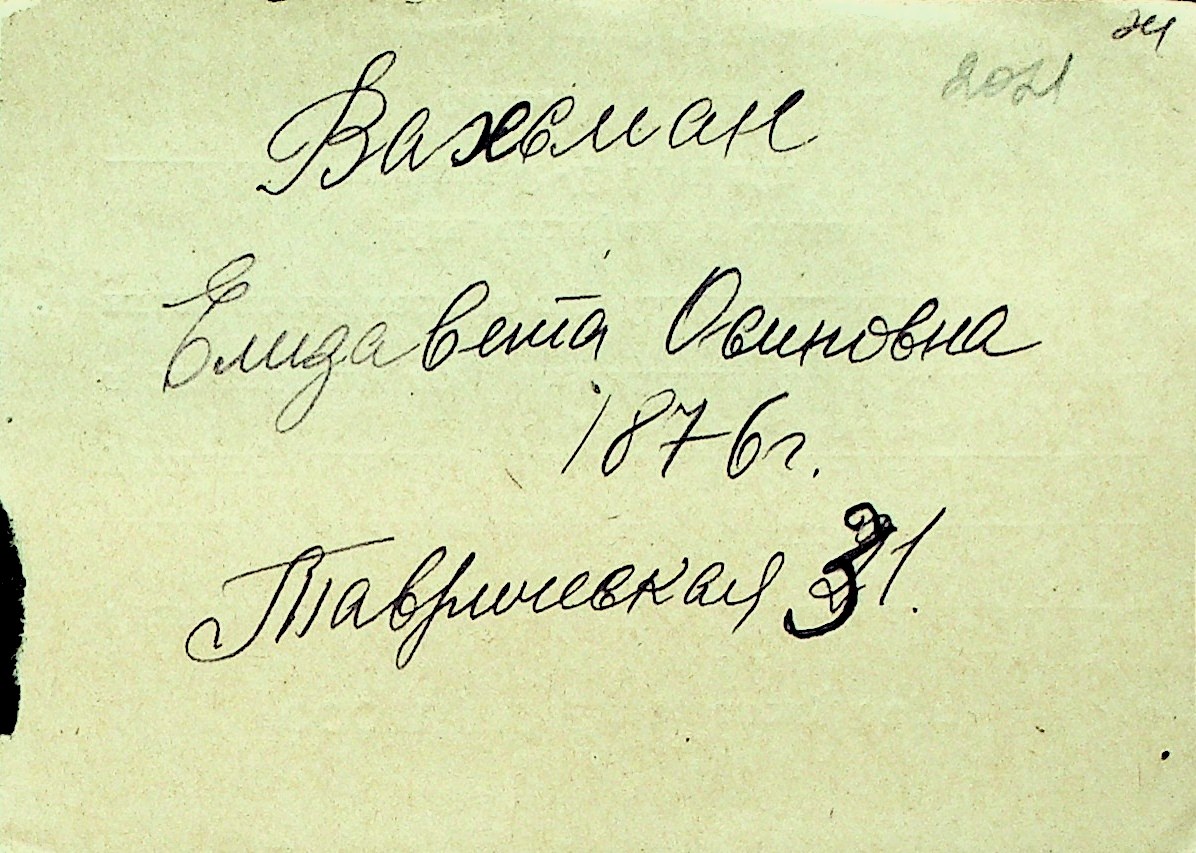 Вахсман
Елизавета Осиповна
1876 г.
Таврическая 31.